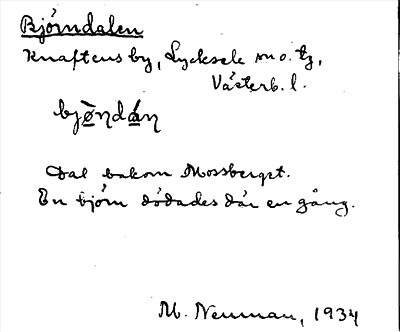 Björndalen
Knaftens by, Lycksele sn o. tg,
Västerb. l.
bjø̀ndán
Dal bakom Mossberget.
En björn dödades där en gång.
M. Neuman, 1934